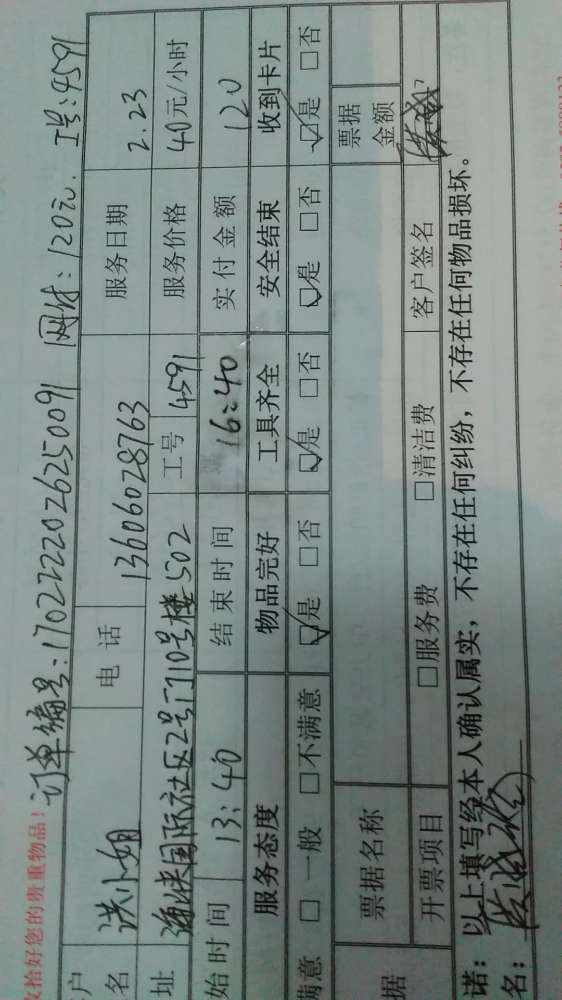 收拾好您的贵重物品！ 订单编号：1702222026250091 网付：120元. 工号：4591
户名 洪小姐 电话 13606028763 服务日期 2.23
址 海峡国际社区2号门10号楼502 工号 4591 服务价格 40元/小时
始时间 13:40 结束时间 16:40 实付金额 120
服务态度 物品完好 工具齐全 安全结束 收到卡片
满意 □一般 □不满意 ☑是 □否 ☑是 □否 ☑是 □否 ☑是 □否
据 票据名称 票据金额
开票项目 □服务费 □清洁费 客户签名
诺：以上填写经本人确认属实，不存在任何纠纷，不存在任何物品损坏。
名：